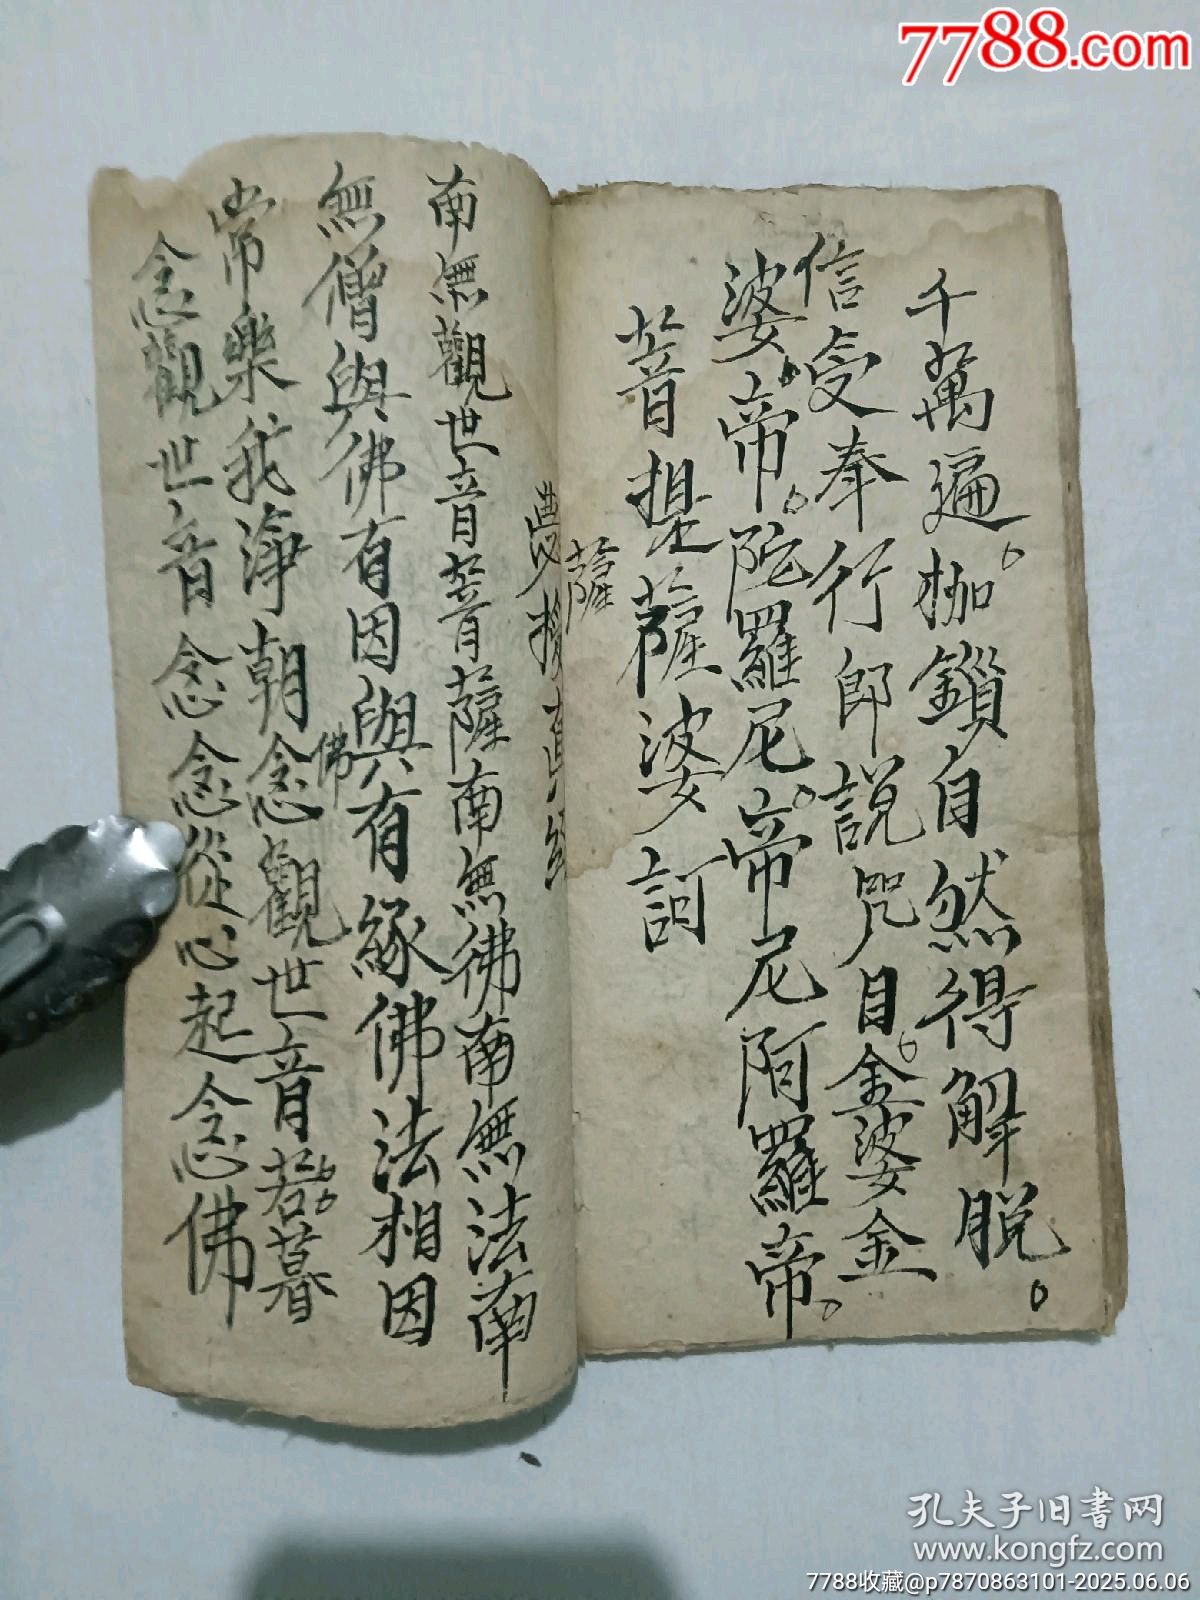 7788.com
千萬遍枷鎖自然得解脫
信受奉行即說咒曰金婆金
婆帝陀羅尼帝尼阿羅帝
菩提薩婆訶
薩
夢授真經
南無觀世音菩薩南無佛南無法南
無僧與佛有因與有緣佛法相因
佛
常樂我淨朝念觀世音若暮
念觀世音念念從心起念佛
孔夫子旧书网
www.kongfz.com
7788收藏@p7870863101-2025.06.06